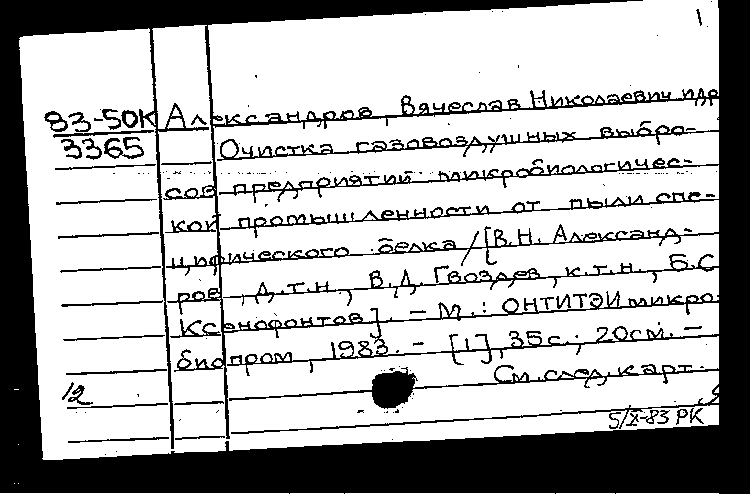 1
83-50К Александров, Вячеслав Николаевич и др
3365 Очистка газовоздушных выбро-
сов предприятий микробиологичес-
кой промышленности от пыли спе-
цифического белка / [В.Н. Александ-
ров, д.т.н., В.Д. Гвоздев, к.т.н., Б.С
Ксенофонтов]. – М.: ОНТИТЭИмикро-
биопром, 1983. – [1], 35с.; 20см. –
12 См. след. карт.
5/X-83 РК